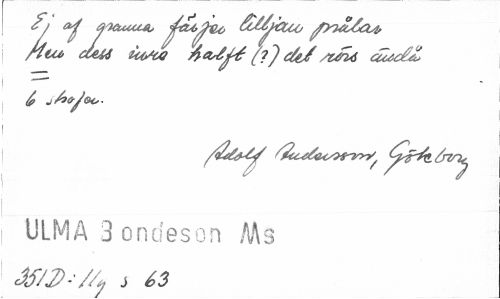 Ej af granna färjer lilljan prålar
Men dess inre halft (?) det rörs ändå
=
6 strofer.
Adolf Andersson, Göteborg
ULMA Bondeson Ms
351D: 11g s 63